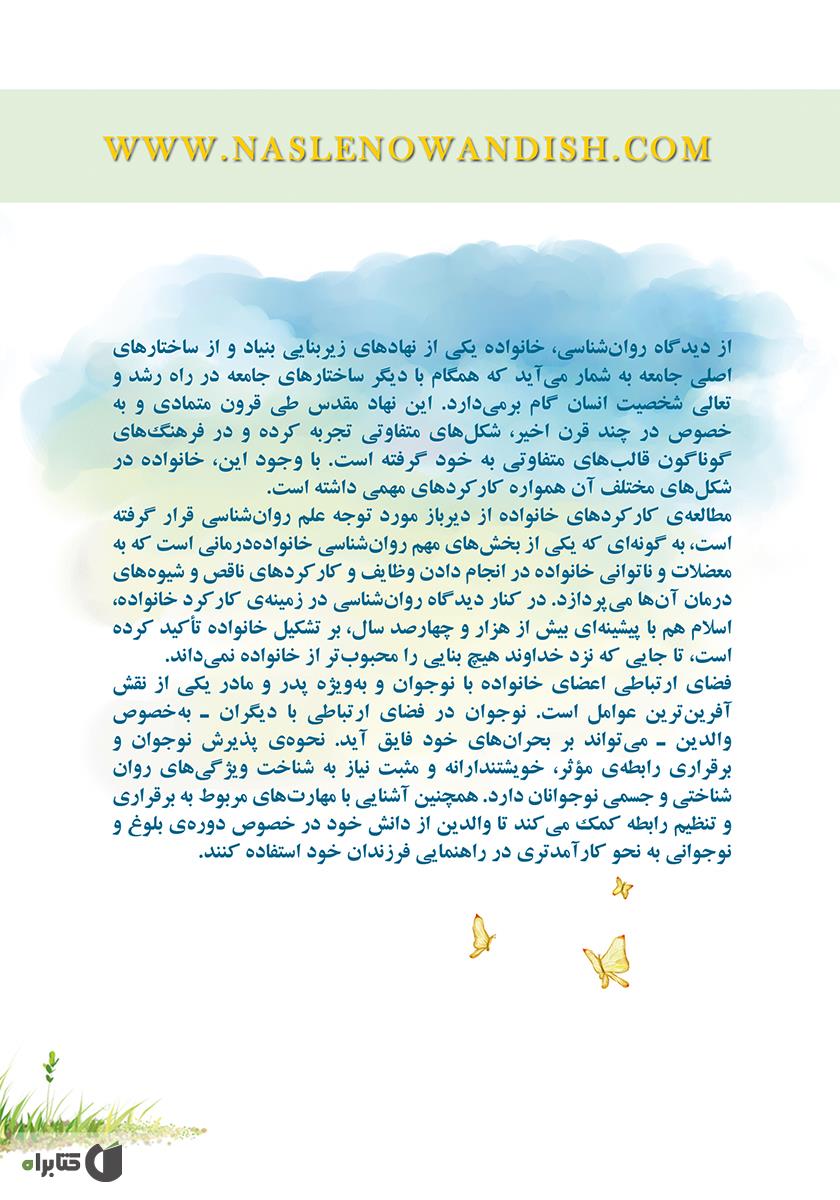 WWW.NASLENOWANDISH.COM
از دیدگاه روان‌شناسی، خانواده یکی از نهادهای زیربنایی بنیاد و از ساختارهای
اصلی جامعه به شمار می‌آید که همگام با دیگر ساختارهای جامعه در راه رشد و
تعالی شخصیت انسان گام برمی‌دارد. این نهاد مقدس طی قرون متمادی و به
خصوص در چند قرن اخیر، شکل‌های متفاوتی تجربه کرده و در فرهنگ‌های
گوناگون قالب‌های متفاوتی به خود گرفته است. با وجود این، خانواده در
شکل‌های مختلف آن همواره کارکردهای مهمی داشته است.
مطالعه‌ی کارکردهای خانواده از دیرباز مورد توجه علم روان‌شناسی قرار گرفته
است، به گونه‌ای که یکی از بخش‌های مهم روان‌شناسی خانواده‌درمانی است که به
معضلات و ناتوانی خانواده در انجام دادن وظایف و کارکردهای ناقص و شیوه‌های
درمان آن‌ها می‌پردازد. در کنار دیدگاه روان‌شناسی در زمینه‌ی کارکرد خانواده،
اسلام هم با پیشینه‌ای بیش از هزار و چهارصد سال، بر تشکیل خانواده تأکید کرده
است، تا جایی که نزد خداوند هیچ بنایی را محبوب‌تر از خانواده نمی‌داند.
فضای ارتباطی اعضای خانواده با نوجوان و به‌ویژه پدر و مادر یکی از نقش
آفرین‌ترین عوامل است. نوجوان در فضای ارتباطی با دیگران ـ به‌خصوص
والدین ـ می‌تواند بر بحران‌های خود فایق آید. نحوه‌ی پذیرش نوجوان و
برقراری رابطه‌ی مؤثر، خویشتندارانه و مثبت نیاز به شناخت ویژگی‌های روان
شناختی و جسمی نوجوانان دارد. همچنین آشنایی با مهارت‌های مربوط به برقراری
و تنظیم رابطه کمک می‌کند تا والدین از دانش خود در خصوص دوره‌ی بلوغ و
نوجوانی به نحو کارآمدتری در راهنمایی فرزندان خود استفاده کنند.
کتابراه